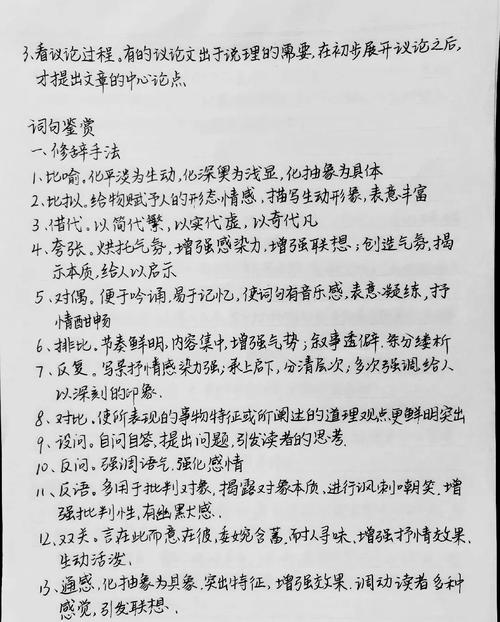 3、看议论过程。有的议论文出于说理的需要,在初步展开议论之后,
才提出文章的中心论点
词句鉴赏
一、修辞手法
1、比喻。化平淡为生动,化深奥为浅显,化抽象为具体
2、比拟。给物赋予人的形态情感,描写生动形象,表意丰富
3、借代。以简代繁,以实代虚,以奇代凡
4、夸张。烘托气氛,增强感染力,增强联想;创造气氛,揭
示本质,给人以启示
5、对偶。便于吟诵,易于记忆,使词句有音乐感,表意凝练,抒
情酣畅
6、排比。节奏鲜明,内容集中,增强气势;叙事透辟,条分缕析
7、反复。写景抒情感染力强;承上启下,分清层次;多次强调,给人
以深刻的印象.
8、对比。使所表现的事物特征或所阐述的道理观点更鲜明突出
9、设问。自问自答,提出问题,引发读者的思考.
10、反问。强调语气.强化感情
11、反语。多用于批判对象,揭露对象本质,进行讽刺嘲笑.增
强批判性,有幽默感.
12、双关。言在此而意在彼,委婉含蓄,耐人寻味、增强抒情效果.
生动活泼.
13、通感,化抽象为具象,突出特征,增强效果.调动读者多种
感觉,引发联想.